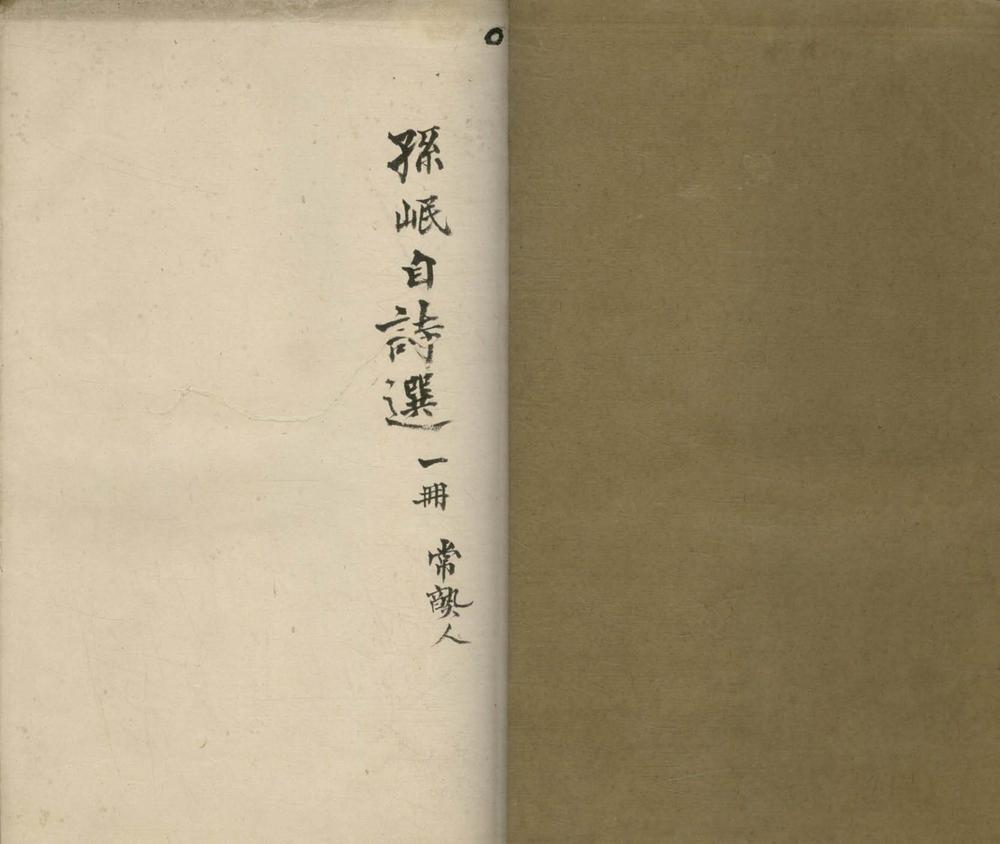 孫岷自詩選一冊 常熟人